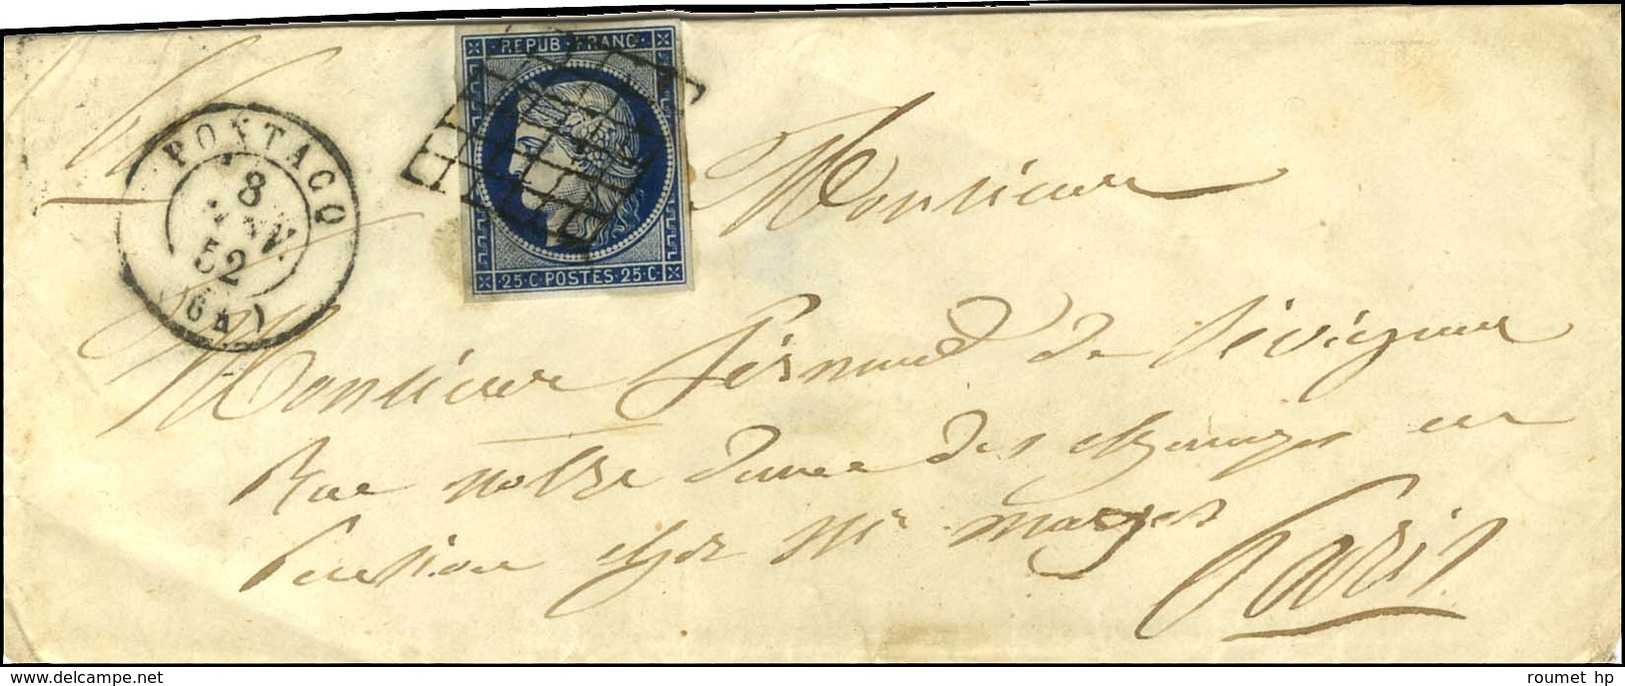 REPUB FRANC
25·C POSTES·25·C
PONTACQ
8
JANV.
52
(64)
Monsieur
Monsieur Fernand de Sévigné
Rue notre dame des champs en
Pension chez Mr
Paris
www.delcampe.net
roumet hp